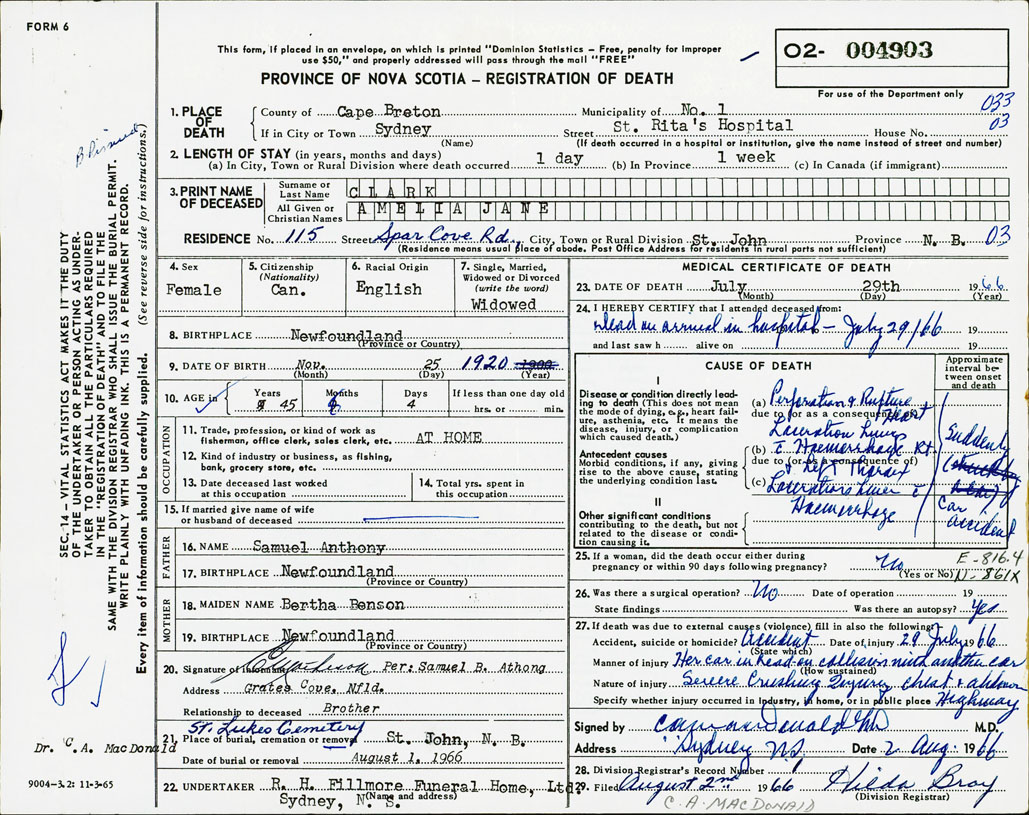 FORM 6
This form, if placed in an envelope, on which is printed "Dominion Statistics – Free, penalty for improper
use $50," and properly addressed will pass through the mail "FREE"
PROVINCE OF NOVA SCOTIA – REGISTRATION OF DEATH
02- 004903
For use of the Department only
033
03
1. PLACE OF DEATH
County of Cape Breton Municipality of No. 1
If in City or Town Sydney Street St. Rita's Hospital House No.
(Name) (If death occurred in a hospital or institution, give the name instead of street and number)
2. LENGTH OF STAY (in years, months and days)
(a) In City, Town or Rural Division where death occurred 1 day (b) In Province 1 week (c) In Canada (if immigrant)
3. PRINT NAME OF DECEASED
Surname or Last Name CLARK
All Given or Christian Names AMELIA JANE
RESIDENCE No. 115 Street Spar Cove Rd., City, Town or Rural Division St. John Province N. B. 03
(Residence means usual place of abode. Post Office Address for residents in rural parts not sufficient)
4. Sex
Female
5. Citizenship
(Nationality)
Can.
6. Racial Origin
English
7. Single, Married,
Widowed or Divorced
(write the word)
Widowed
8. BIRTHPLACE Newfoundland
(Province or Country)
9. DATE OF BIRTH Nov. 25 1920
(Month) (Day) (Year)
10. AGE in
Years Months Days If less than one day old
45 4 hrs. or min.
OCCUPATION
11. Trade, profession, or kind of work as
fisherman, office clerk, sales clerk, etc. AT HOME
12. Kind of industry or business, as fishing,
bank, grocery store, etc.
13. Date deceased last worked
at this occupation
14. Total yrs. spent in
this occupation
15. If married give name of wife
or husband of deceased
FATHER
16. NAME Samuel Anthony
17. BIRTHPLACE Newfoundland
(Province or Country)
MOTHER
18. MAIDEN NAME Bertha Benson
19. BIRTHPLACE Newfoundland
(Province or Country)
20. Signature of informant Per: Samuel B. Athong
Address Grates Cove, Nfld.
Relationship to deceased Brother
St. Lukes Cemetery
21. Place of burial, cremation or removal St. John, N. B.
Date of burial or removal August 1, 1966
22. UNDERTAKER R. H. Fillmore Funeral Home, Ltd.
(Name and address)
Sydney, N. S.
MEDICAL CERTIFICATE OF DEATH
23. DATE OF DEATH July 29th 1966
(Month) (Day) (Year)
24. I HEREBY CERTIFY that I attended deceased from:
Dead on arrival in hospital – July 29/66 19
and last saw h alive on 19
CAUSE OF DEATH
Approximate
interval be-
tween onset
and death
I
Disease or condition directly lead-
ing to death (This does not mean
the mode of dying, e.g., heart fail-
ure, asthenia, etc. It means the
disease, injury, or complication
which caused death.)
(a) Perforation & Rupture
due to (or as a consequence of) Heart
Laceration Liver
Antecedent causes
Morbid conditions, if any, giving
rise to the above cause, stating
the underlying condition last.
(b) c Haemorrhage Rt
due to (or as a consequence of)
& Left Thorax
(c) Lacerations Liver c
Haemorrhage
Sudden
Car
accident
II
Other significant conditions
contributing to the death, but not
related to the disease or condi-
tion causing it.
25. If a woman, did the death occur either during
pregnancy or within 90 days following pregnancy? No
(Yes or No)
E-816.4
N-861X
26. Was there a surgical operation? No Date of operation 19
State findings Was there an autopsy? Yes
27. If death was due to external causes (violence) fill in also the following:
Accident, suicide or homicide? Accident Date of injury 29 July 1966
(State which)
Manner of injury Her car in head on collision with another car
(How sustained)
Nature of injury Severe Crushing Injury chest & abdomen
Specify whether injury occurred in industry, in home, or in public place Highway
Signed by M.D.
Address Sydney NS Date 2 Aug. 1966
28. Division Registrar's Record Number
29. Filed August 2nd 1966 Hilda Bray
(Division Registrar)
C. A. MACDONALD
SEC. 14 – VITAL STATISTICS ACT MAKES IT THE DUTY
OF THE UNDERTAKER OR PERSON ACTING AS UNDER-
TAKER TO OBTAIN ALL THE PARTICULARS REQUIRED
IN THE "REGISTRATION OF DEATH" AND TO FILE THE
SAME WITH THE DIVISION REGISTRAR WHO SHALL ISSUE THE BURIAL PERMIT.
WRITE PLAINLY WITH UNFADING INK. THIS IS A PERMANENT RECORD.
Every item of information should be carefully supplied. (See reverse side for instructions.)
Dr. C. A. MacDonald
9004-3.2: 11-3-65